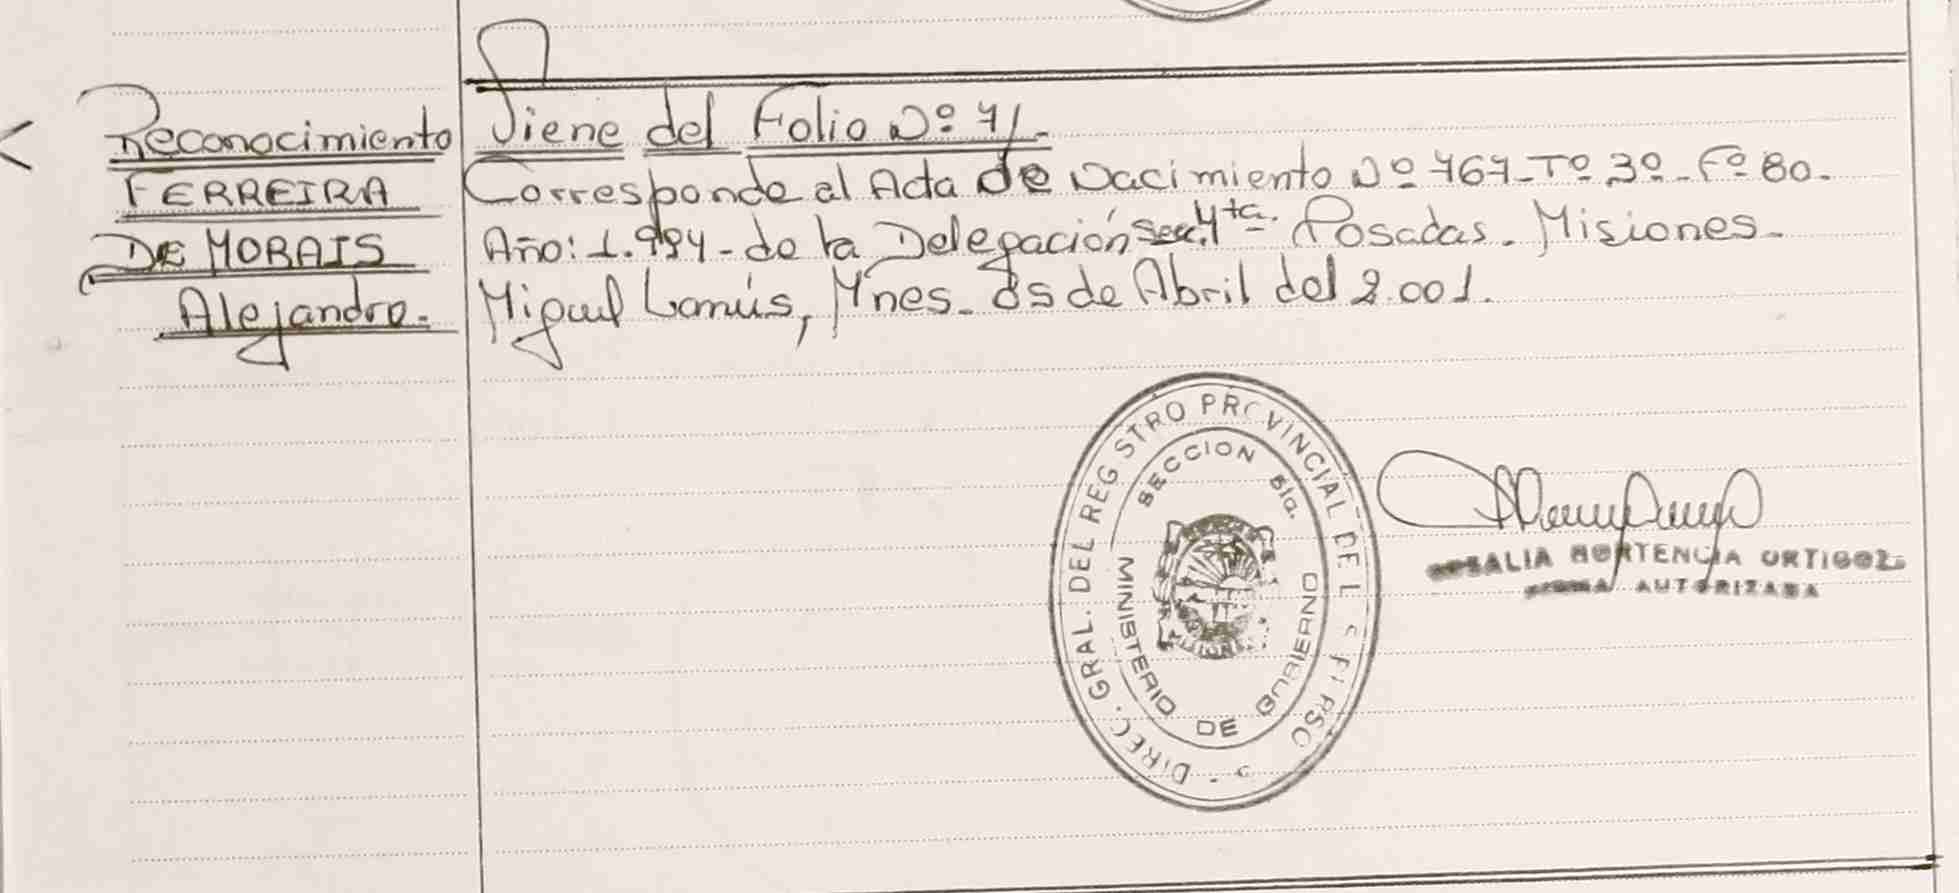 Reconocimiento
FERREIRA
DE MORAIS
Alejandro.
Viene del Folio Nº 71.
Corresponde al Acta de Nacimiento Nº 767-Tº 3º-Fº 80.
Año: 1.994-de la Delegación Secc. 4ta. Posadas. Misiones.
Miguel Lanús, Mnes. 05 de Abril del 2.001.
DIREC. GRAL. DEL REGISTRO PROVINCIAL DE L
SECCION 5ta.
MINISTERIO DE GOBIERNO
ROSALIA HORTENCIA ORTIGOZA
FIRMA AUTORIZADA